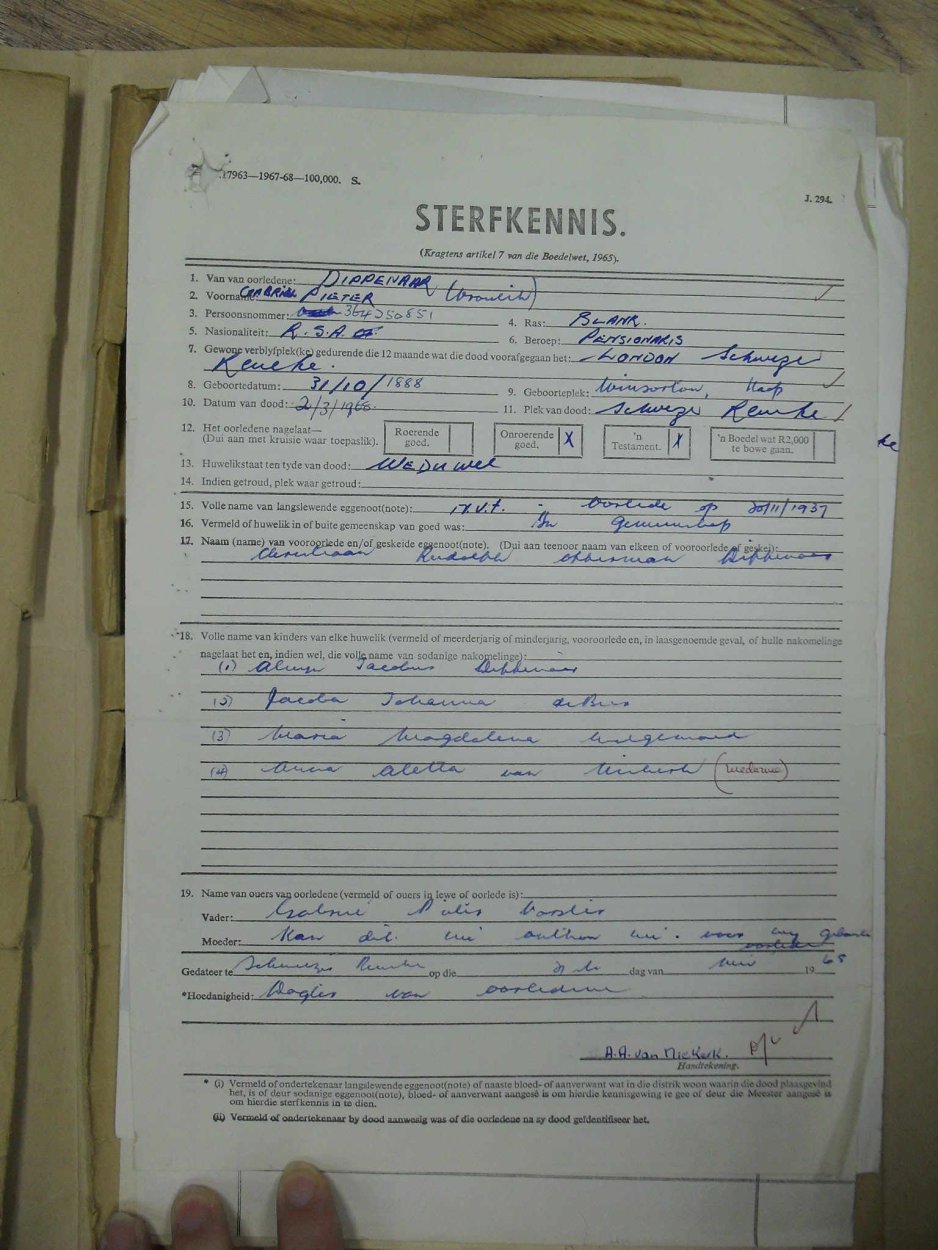 17963—1967-68—100,000. S.
J. 294.
STERFKENNIS.
(Kragtens artikel 7 van die Boedelwet, 1965).
1. Van van oorledene: DIPPENAAR
2. Voorname: GABRIEL PIETER (Vroulik)
3. Persoonsnommer: 364 250851
4. Ras: BLANK.
5. Nasionaliteit: R.S.A.
6. Beroep: PENSIONARIS
7. Gewone verblyfplek(ke) gedurende die 12 maande wat die dood voorafgegaan het: LONDON Schweizer
Reneke.
8. Geboortedatum: 31/10/1888
9. Geboorteplek: Winsorton, Kaap
10. Datum van dood: 2/3/1968.
11. Plek van dood: Schweizer Reneke
12. Het oorledene nagelaat—
(Dui aan met kruisie waar toepaslik).
Roerende goed.
Onroerende goed. X
'n Testament. X
'n Boedel wat R2,000 te bowe gaan.
13. Huwelikstaat ten tyde van dood: WEDUWEE
14. Indien getroud, plek waar getroud:
15. Volle name van langslewende eggenoot(note): n.v.t. - Oorlede op 20/11/1937
16. Vermeld of huwelik in of buite gemeenskap van goed was: In Gemeenskap
17. Naam (name) van vooroorlede en/of geskeide eggenoot(note). (Dui aan teenoor naam van elkeen of vooroorlede of geskei):
Christiaan Rudolph Dippenaar
18. Volle name van kinders van elke huwelik (vermeld of meerderjarig of minderjarig, vooroorlede en, in laasgenoemde geval, of hulle nakomelinge
nagelaat het en, indien wel, die volle name van sodanige nakomelinge):
(1) Jacobus Dippenaar
(2) Jacoba Johanna de Bus
(3) Maria Magdalena
(4) Anna Aletta van Niekerk (weduwee)
19. Name van ouers van oorledene (vermeld of ouers in lewe of oorlede is):
Vader: Vorster
Moeder: Kan dit nie onthou nie. voor my geboorte
oorlede
Gedateer te Schweizer Reneke op die dag van Mei 1968
*Hoedanigheid: Dogter van oorledene
A.A. van Niekerk.
Handtekening.
* (i) Vermeld of ondertekenaar langslewende eggenoot(note) of naaste bloed- of aanverwant wat in die distrik woon waarin die dood plaasgevind
het, is of deur sodanige eggenoot(note), bloed- of aanverwant aangesê is om hierdie kennisgewing te gee of deur die Meester aangesê is
om hierdie sterfkennis in te dien.
(ii) Vermeld of ondertekenaar by dood aanwesig was of die oorledene na sy dood geïdentifiseer het.